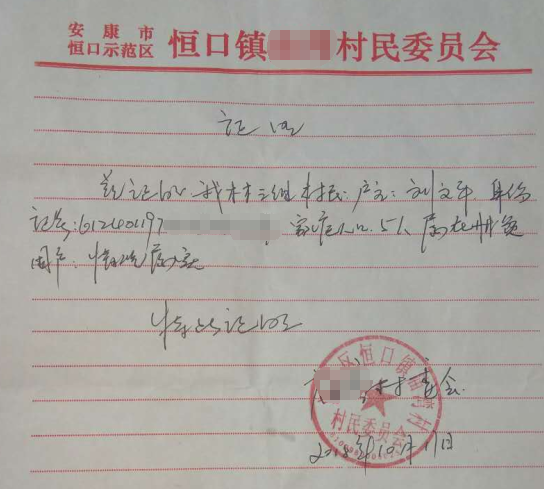 安康市
恒口示范区 恒口镇 村民委员会
证明
兹证明 我村三组村民: 户主: 刘文 身份
证号:612401197 , 家庭人口5人 属在册贫
困户. 情况属实
特此证明
村委会.
区恒口镇
村民委员会
2018年10月17日